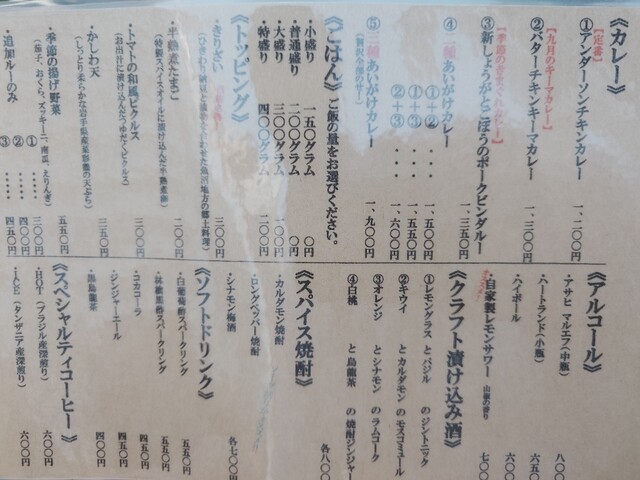 《カレー》
【定番】
①アンダーソンチキンカレー 一、二〇〇円
【九月のキーマカレー】
②バターチキンキーマカレー 一、三〇〇円
③新しょうがとごぼうのポークビンダルー 一、三五〇円
④二種あいがけカレー
①+② ・・・ 一、五〇〇円
①+③ ・・・ 一、五五〇円
②+③ ・・・ 一、六〇〇円
⑤三種あいがけカレー 一、九〇〇円
(贅沢全部のせ!)
《ごはん》ご飯の量をお選びください。
・小盛り 一五〇グラム 〇円
・普通盛り 二〇〇グラム 〇円
・大盛り 三〇〇グラム 一〇〇円
・特盛り 四〇〇グラム 二〇〇円
《トッピング》
・きりざい 三〇〇円
・半熟煮たまご 二〇〇円
(特製スパイスオイルに漬け込んだ半熟煮卵)
・トマトの和風ピクルス 三〇〇円
(お出汁に漬け込んだつゆだくピクルス)
・かしわ天 三五〇円
(しっとり柔らかな岩手県産菜彩鶏の天ぷら)
・季節の揚げ野菜 五五〇円
(茄子、おくら、ズッキーニ、南瓜、えりんぎ)
・追加ルーのみ
① ・・・・・ 三〇〇円
② ・・・・・ 四〇〇円
③ ・・・・・ 四五〇円
《アルコール》
・アサヒ マルエフ(中瓶) 八〇
・ハートランド(小瓶) 六五
・ハイボール 六〇
・自家製レモンサワー 山椒の香り 七〇
《クラフト漬け込み酒》
①レモングラス と バジル の ジントニック
②キウイ と カルダモン の モスコミュール
③オレンジ と シナモン の ラムコーク
④白桃 と 烏龍茶 の 焼酎ジンジャー
各八〇
《スパイス焼酎》
・カルダモン焼酎
・ロングペッパー焼酎
・シナモン梅酒
各七〇〇円
《ソフトドリンク》
・白葡萄酢スパークリング 五五〇円
・林檎黒酢スパークリング 五五〇円
・コカコーラ 四五〇円
・ジンジャーエール 四五〇円
・黒烏龍茶 四〇〇円
《スペシャルティコーヒー》
・HOT(ブラジル産深煎り) 六〇〇円
・ICE(タンザニア産深煎り) 六〇〇円